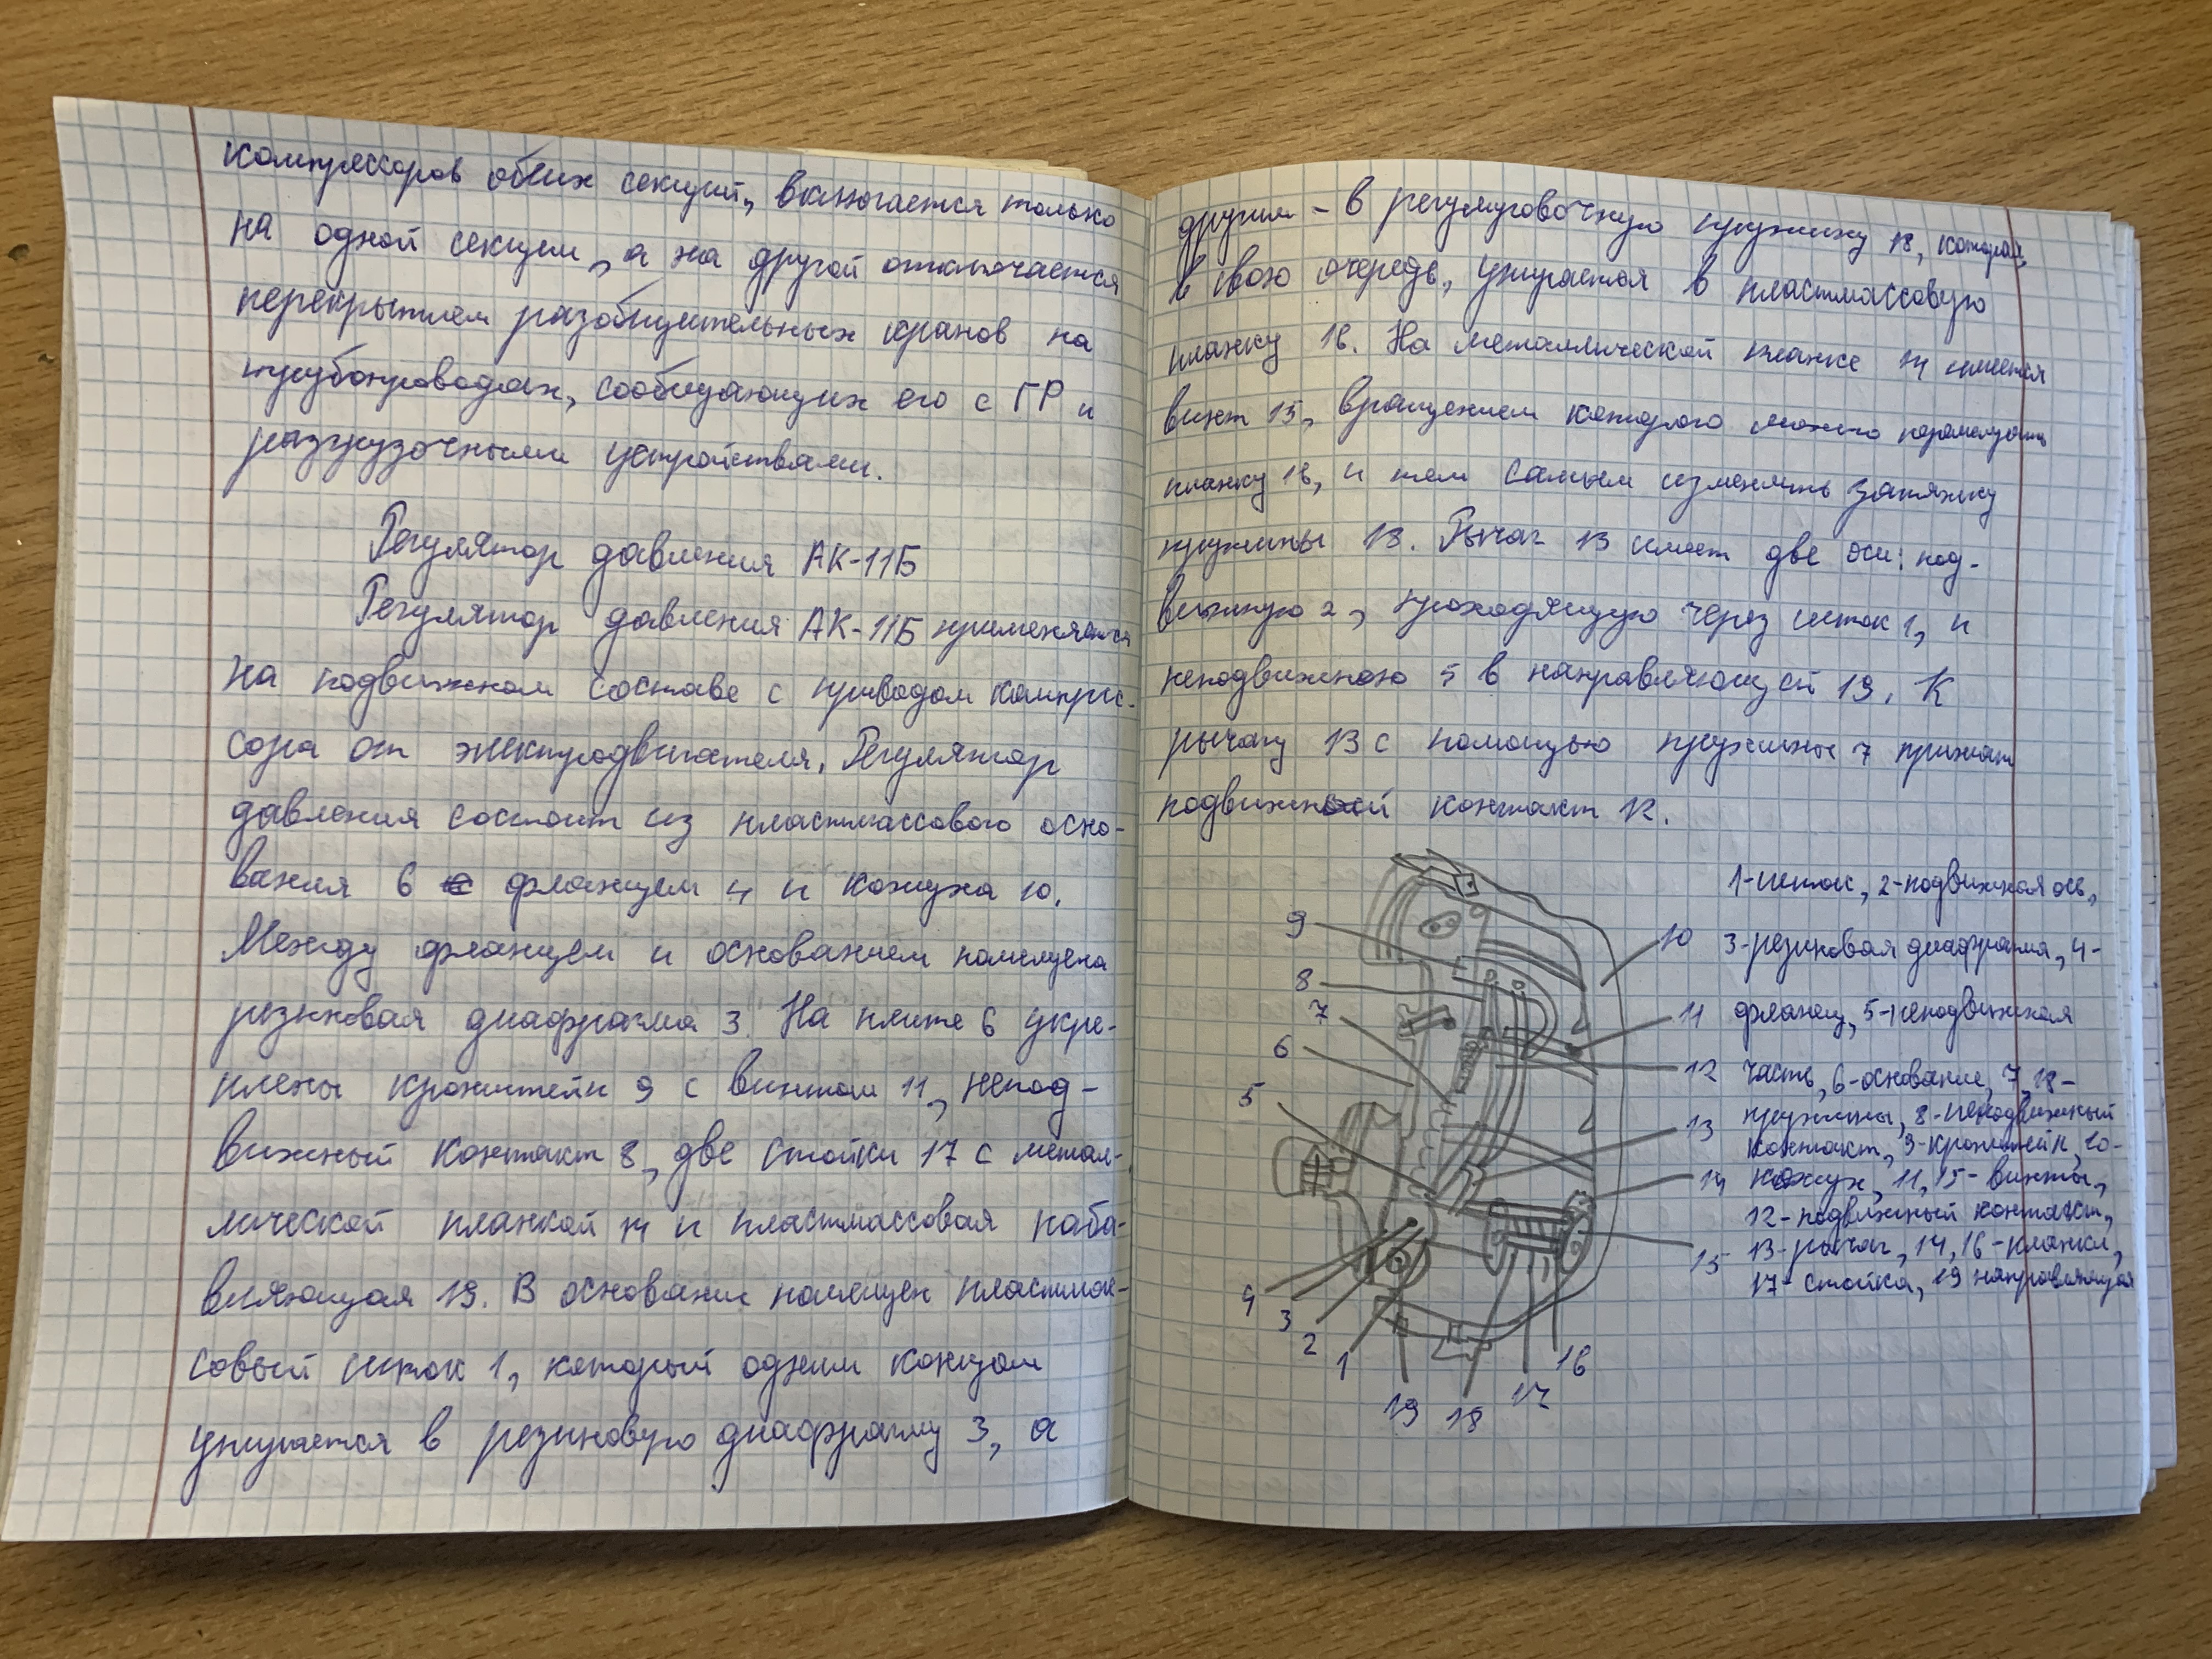 компрессоров обеих секций, включается только
на одной секции, а на другой отключается
перекрытием разобщительных кранов на
трубопроводах, сообщающих его с ГР и
разгрузочными устройствами.
Регулятор давления АК-11Б
Регулятор давления АК-11Б применяется
на подвижном составе с приводом компрес-
сора от электродвигателя. Регулятор
давления состоит из пластмассового осно-
вания 6 с фланцем 4 и кожуха 10.
Между фланцем и основанием помещена
резиновая диафрагма 3. На плите 6 укре-
плены кронштейн 9 с винтом 11, непод-
вижный контакт 8, две стойки 17 с метал-
лической планкой 14 и пластмассовая напра-
вляющая 19. В основание помещен пластмас-
совый шток 1, который одним концом
упирается в резиновую диафрагму 3, а
другим - в регулировочную пружину 18, которая,
в свою очередь, упирается в пластмассовую
планку 16. На металлической планке 14 имеется
винт 15, вращением которого можно перемещать
планку 16, и тем самым изменять затяжку
пружины 18. Рычаг 13 имеет две оси: под-
вижную 2, проходящую через шток 1, и
неподвижную 5 в направляющей 19. К
рычагу 13 с помощью пружины 7 прижат
подвижной контакт 12.
1-шток, 2-подвижная ось,
3-резиновая диафрагма, 4-
фланец, 5-неподвижная
часть, 6-основание, 7,18-
пружины, 8-неподвижный
контакт, 9-кронштейн, 10-
кожух, 11,15-винты,
12-подвижный контакт,
13-рычаг, 14,16-планки,
17-стойка, 19 направляющая
9
8
7
6
5
4
3
2
1
19
18
17
16
10
11
12
13
14
15